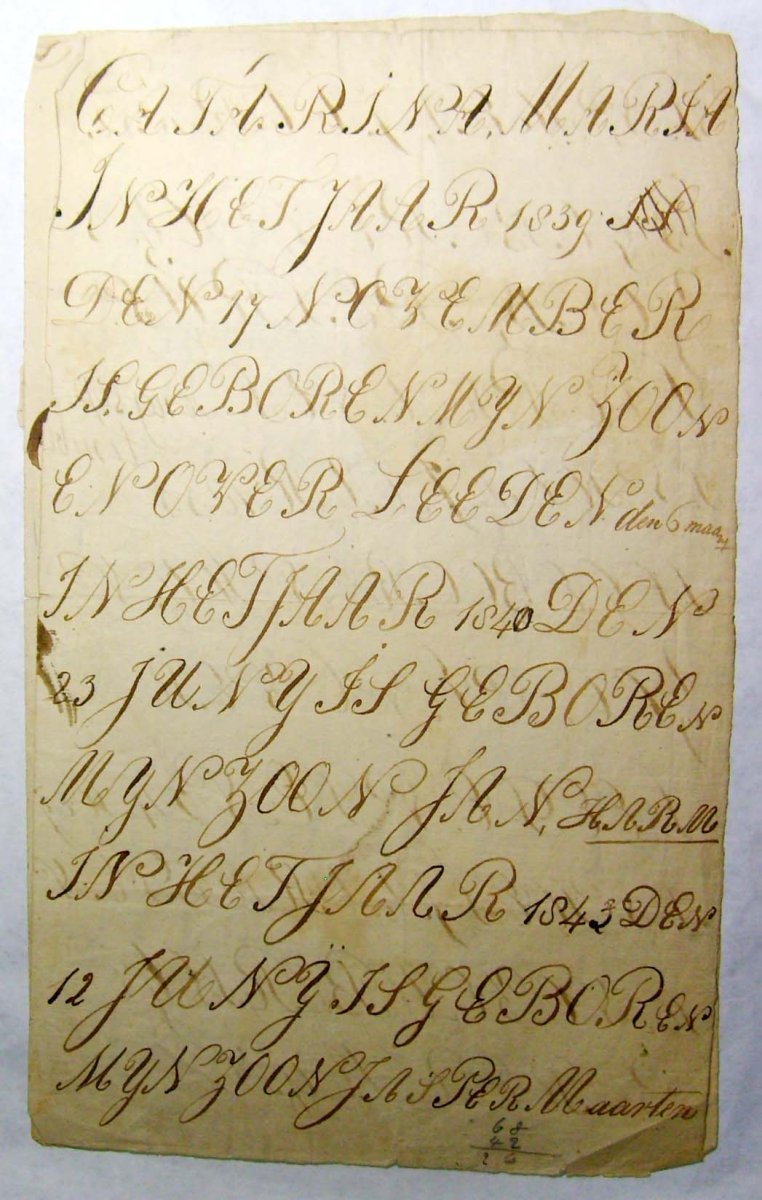 CATARINA MARIA
IN HET JAAR 1839
DEN 17 NOVEMBER
IS GEBOREN MYN ZOON
EN OVER LEEDEN den 6 maart
IN HET JAAR 1840 DEN
23 JUNY IS GEBOREN
MYN ZOON JAN HARM
IN HET JAAR 1843 DEN
12 JUNŸ IS GEBOREN
MYN ZOON JASPER Maarten
68
42
26